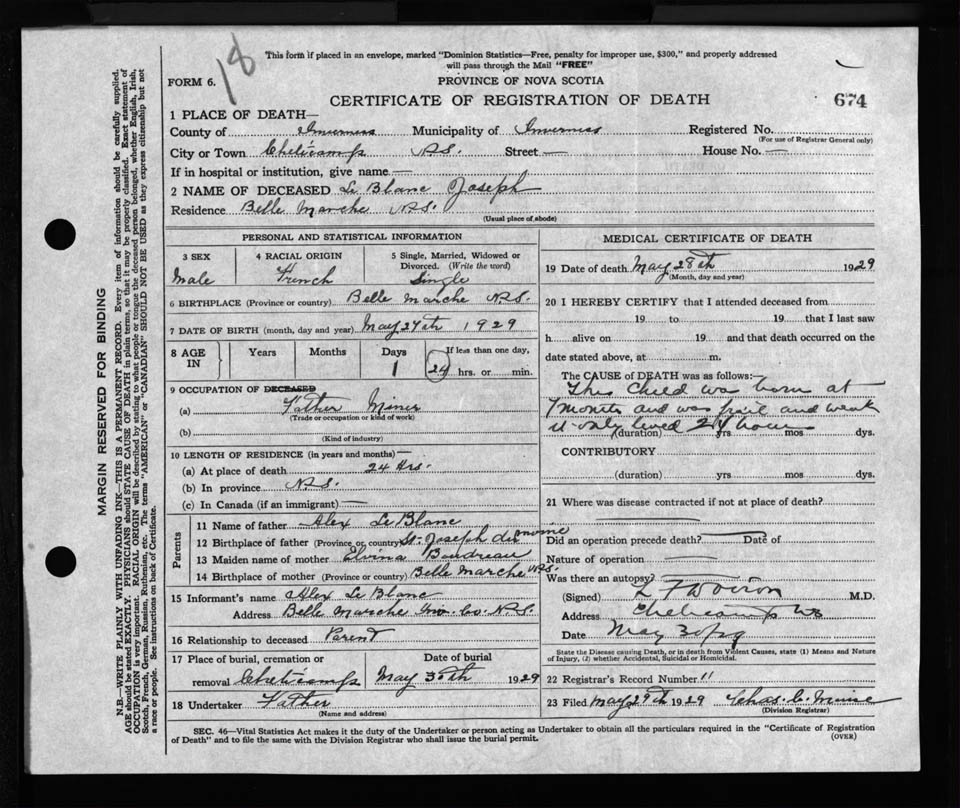 18
This form if placed in an envelope, marked "Dominion Statistics—Free, penalty for improper use, $300," and properly addressed
will pass through the Mail "FREE"
FORM 6.
PROVINCE OF NOVA SCOTIA
CERTIFICATE OF REGISTRATION OF DEATH
674
1 PLACE OF DEATH—
County of Inverness Municipality of Inverness Registered No.
(For use of Registrar General only)
City or Town Cheticamp N.S. Street — House No. —
If in hospital or institution, give name. —
2 NAME OF DECEASED Le Blanc Joseph
Residence Belle Marche N.S.
(Usual place of abode)
PERSONAL AND STATISTICAL INFORMATION
3 SEX 4 RACIAL ORIGIN 5 Single, Married, Widowed or
Divorced. (Write the word)
Male French Single
6 BIRTHPLACE (Province or country) Belle Marche N.S.
7 DATE OF BIRTH (month, day and year) May 27th 1929
8 AGE IN Years Months Days If less than one day,
1 24 hrs. or min.
9 OCCUPATION OF DECEASED
(a) Father Miner
(Trade or occupation or kind of work)
(b)
(Kind of industry)
10 LENGTH OF RESIDENCE (in years and months)—
(a) At place of death 24 Hrs.
(b) In province N.S.
(c) In Canada (if an immigrant) —
Parents
11 Name of father Alex Le Blanc
12 Birthplace of father (Province or country) St. Joseph du Moine
13 Maiden name of mother Elvina Boudreau
14 Birthplace of mother (Province or country) Belle Marche N.S.
15 Informant's name Alex Le Blanc
Address Belle Marche Inv. Co. N.S.
16 Relationship to deceased Parent
17 Place of burial, cremation or Date of burial
removal Cheticamp May 30th 1929
18 Undertaker Father
(Name and address)
MEDICAL CERTIFICATE OF DEATH
19 Date of death May 28th 1929
(Month, day and year)
20 I HEREBY CERTIFY that I attended deceased from
19 to 19 that I last saw
h alive on 19 and that death occurred on the
date stated above, at m.
The CAUSE of DEATH was as follows:
This child was born at
7 months and was frail and weak
it only lived 24 hours
(duration) yrs mos dys.
CONTRIBUTORY
(duration) yrs mos dys.
21 Where was disease contracted if not at place of death?
Did an operation precede death? — Date of
Nature of operation
Was there an autopsy?
(Signed) M.D.
Address Cheticamp NS
Date May 30/29
State the Disease causing Death, or in death from Violent Causes, state (1) Means and Nature
of Injury, (2) whether Accidental, Suicidal or Homicidal.
22 Registrar's Record Number 11
23 Filed May 29th 1929 Chas. C.
(Division Registrar)
SEC. 46—Vital Statistics Act makes it the duty of the Undertaker or person acting as Undertaker to obtain all the particulars required in the "Certificate of Registration
of Death" and to file the same with the Division Registrar who shall issue the burial permit.
(OVER)
MARGIN RESERVED FOR BINDING
N.B.—WRITE PLAINLY WITH UNFADING INK—THIS IS A PERMANENT RECORD. Every item of information should be carefully supplied.
AGE should be stated EXACTLY. PHYSICIANS should STATE CAUSE OF DEATH in plain terms, so that it may be properly classified. Exact statement of
OCCUPATION is very important. RACIAL ORIGIN will be described by stating to what people or tongue the deceased person belonged, whether English, Irish,
Scotch, French, German, Russian, Ruthenian, etc. The terms "AMERICAN" or "CANADIAN" SHOULD NOT BE USED as they express citizenship but not
a race or people. See instructions on back of Certificate.